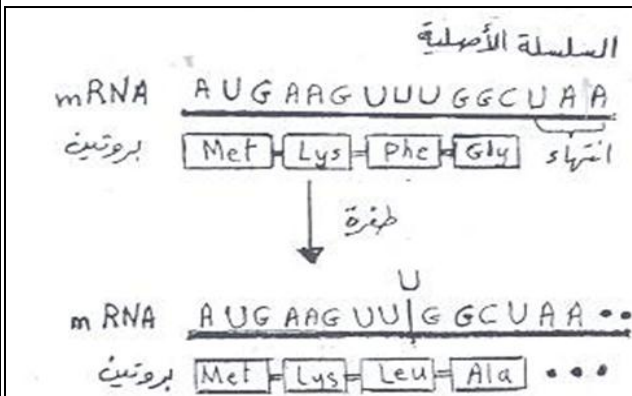 السلسلة الأصلية
mRNA AUG AAG UUU GGC UAA
بروتين Met Lys Phe Gly انتهاء
طفرة
U
mRNA AUG AAG UU GGCUAA ••
بروتين Met Lys Leu Ala •••